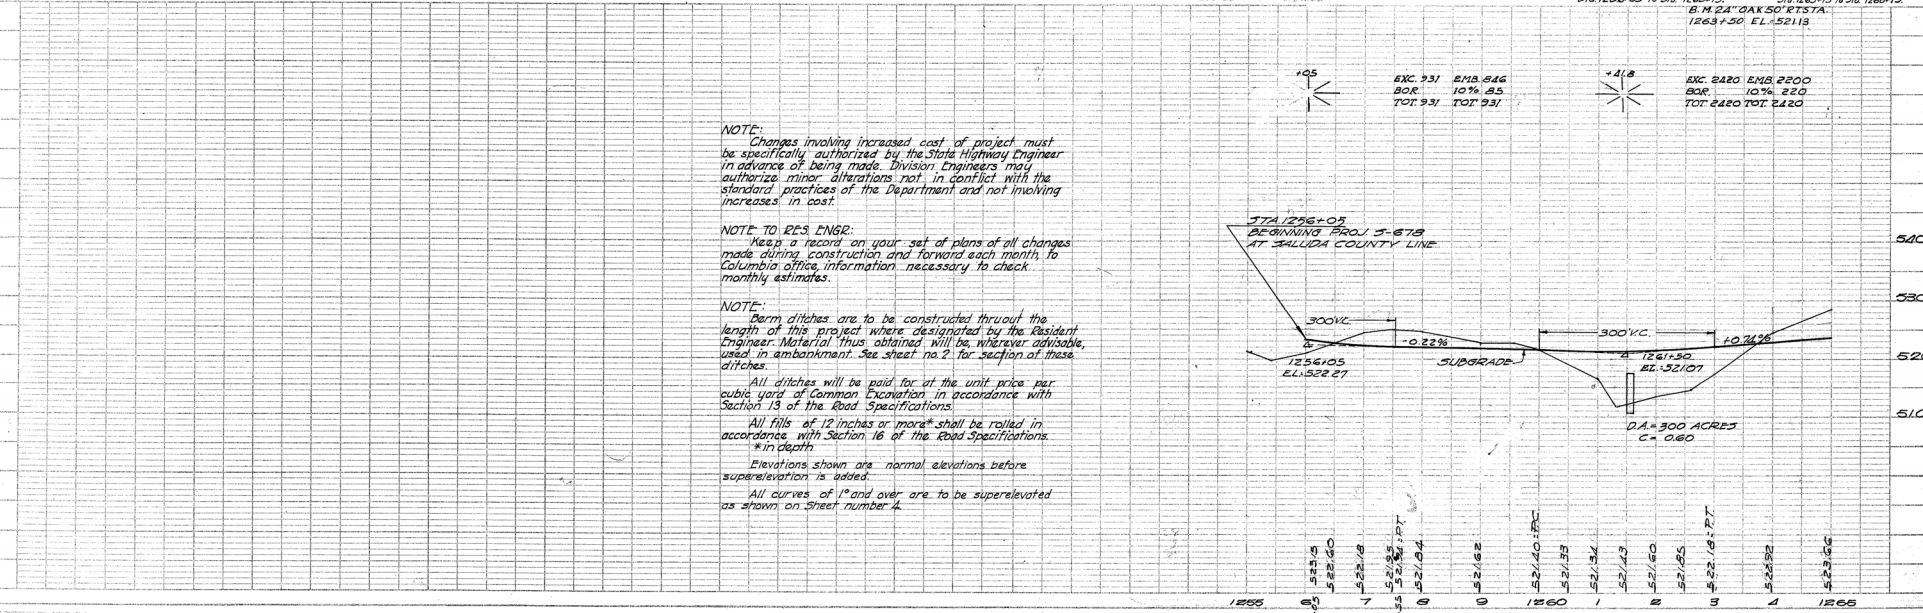 B.M. 24" OAK 50' RT. STA.
1263+50 EL.=521.13
+05
EXC. 931 EMB. 846
BOR. 10% 85
TOT. 931 TOT. 931
+41.8
EXC. 2420 EMB. 2200
BOR. 10% 220
TOT. 2420 TOT. 2420
NOTE:
Changes involving increased cost of project must
be specifically authorized by the State Highway Engineer
in advance of being made. Division Engineers may
authorize minor alterations not in conflict with the
standard practices of the Department and not involving
increases in cost.
NOTE TO RES. ENGR:
Keep a record on your set of plans of all changes
made during construction and forward each month, to
Columbia office, information necessary to check
monthly estimates.
NOTE:
Berm ditches are to be constructed thruout the
length of this project where designated by the Resident
Engineer. Material thus obtained will be, wherever advisable,
used in embankment. See sheet no. 2 for section of these
ditches.
All ditches will be paid for at the unit price per
cubic yard of Common Excavation in accordance with
Section 13 of the Road Specifications.
All fills of 12 inches or more* shall be rolled in
accordance with Section 16 of the Road Specifications.
*in depth
Elevations shown are normal elevations before
superelevation is added.
All curves of 1° and over are to be superelevated
as shown on Sheet number 4.
STA. 1256+05
BEGINNING PROJ. S-678
AT SALUDA COUNTY LINE
540
530
520
510
300 V.C.
-0.22%
300' V.C.
+0.74%
1256+05
EL.=522.27
SUBGRADE
1261+50
EL.=521.07
D.A.=300 ACRES
C= 0.60
523.15
522.60
522.18
521.95
521.94=P.T.
521.84
521.62
521.40=P.C.
521.33
521.34
521.43
521.60
521.85
522.18=P.T.
522.92
523.66
1255 6 7 8 9 1260 1 2 3 4 1265
05
55